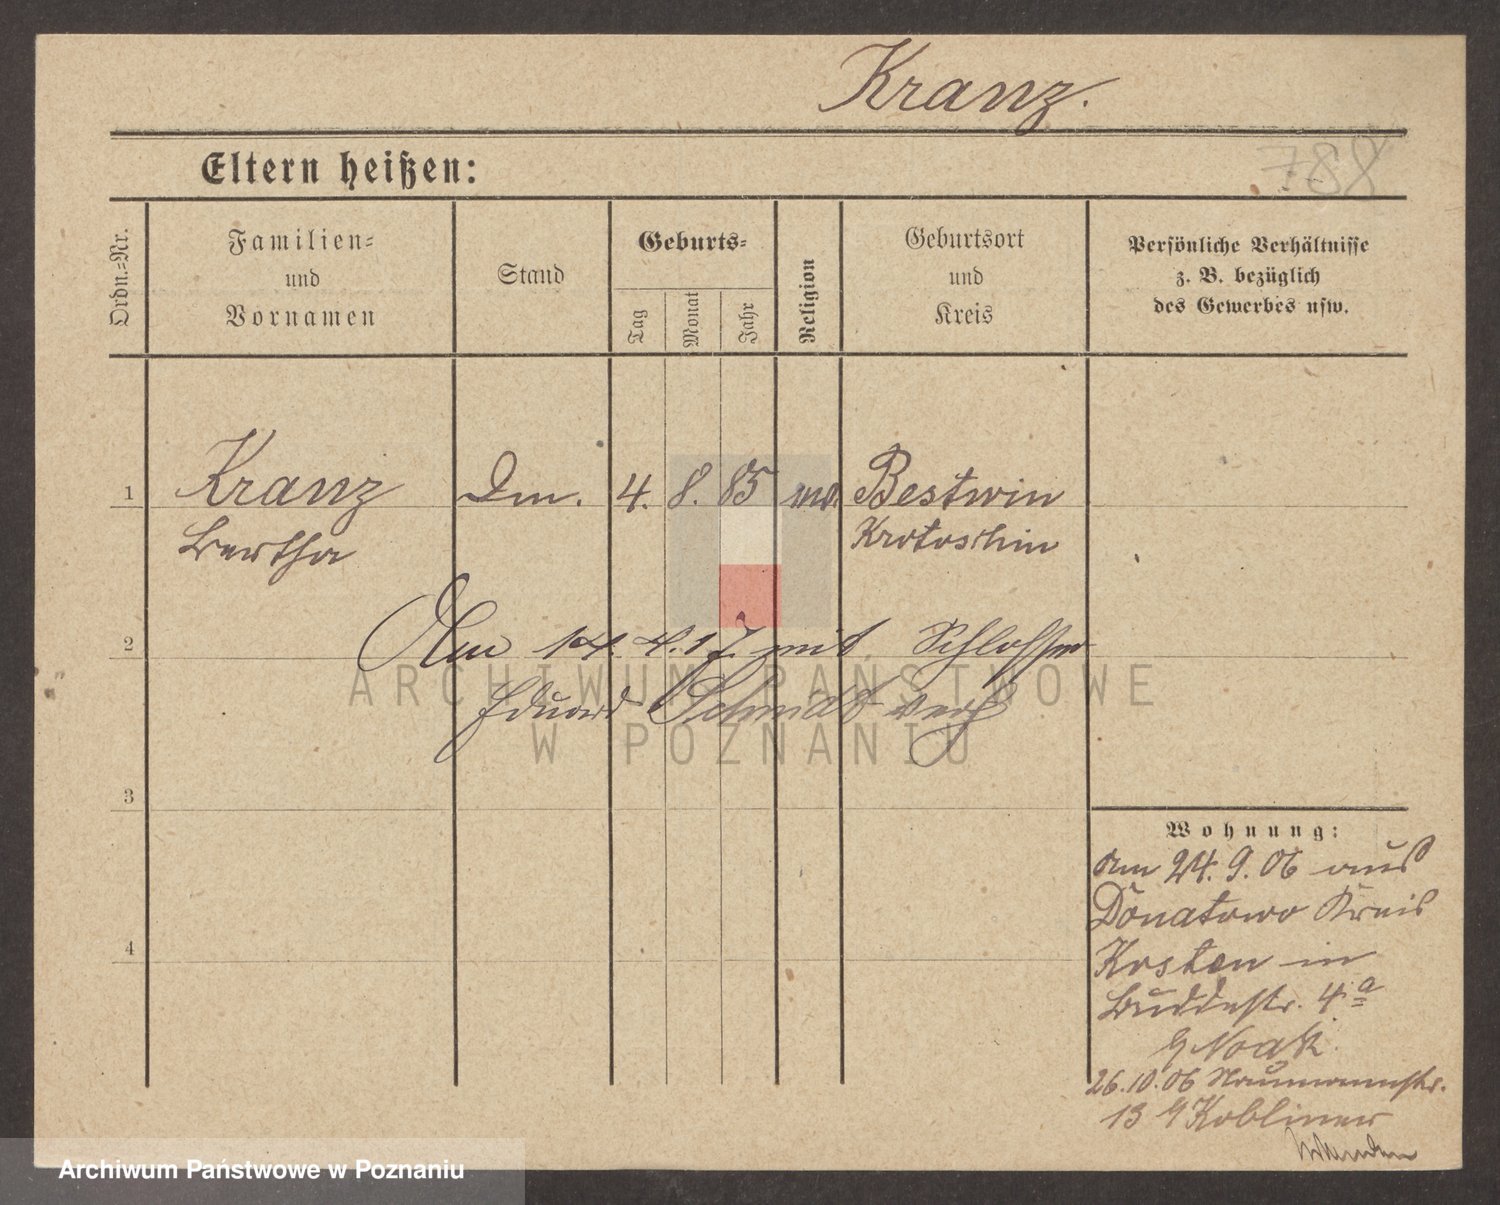 Kranz.
788
Eltern heißen:
Ordn.=Nr.
Familien=
und
Vornamen
Stand
Geburts=
Tag
Monat
Jahr
Religion
Geburtsort
und
Kreis
Persönliche Verhältnisse
z. B. bezüglich
des Gewerbes usw.
1
Kranz Dm. 4. 8. 85 Bestwin
Bertha Krotoschin
2
Am 14.4.17 mit Schlosser
Eduard Schmidt verh
3
4
Wohnung:
Am 24. 9. 06 aus
Donatowo Kreis
Kosten in
Buddestr. 4.a
Noak.
26.10.06 Naumannstr.
13 Kobliner
ARCHIWUM PAŃSTWOWE
W POZNANIU
Archiwum Państwowe w Poznaniu